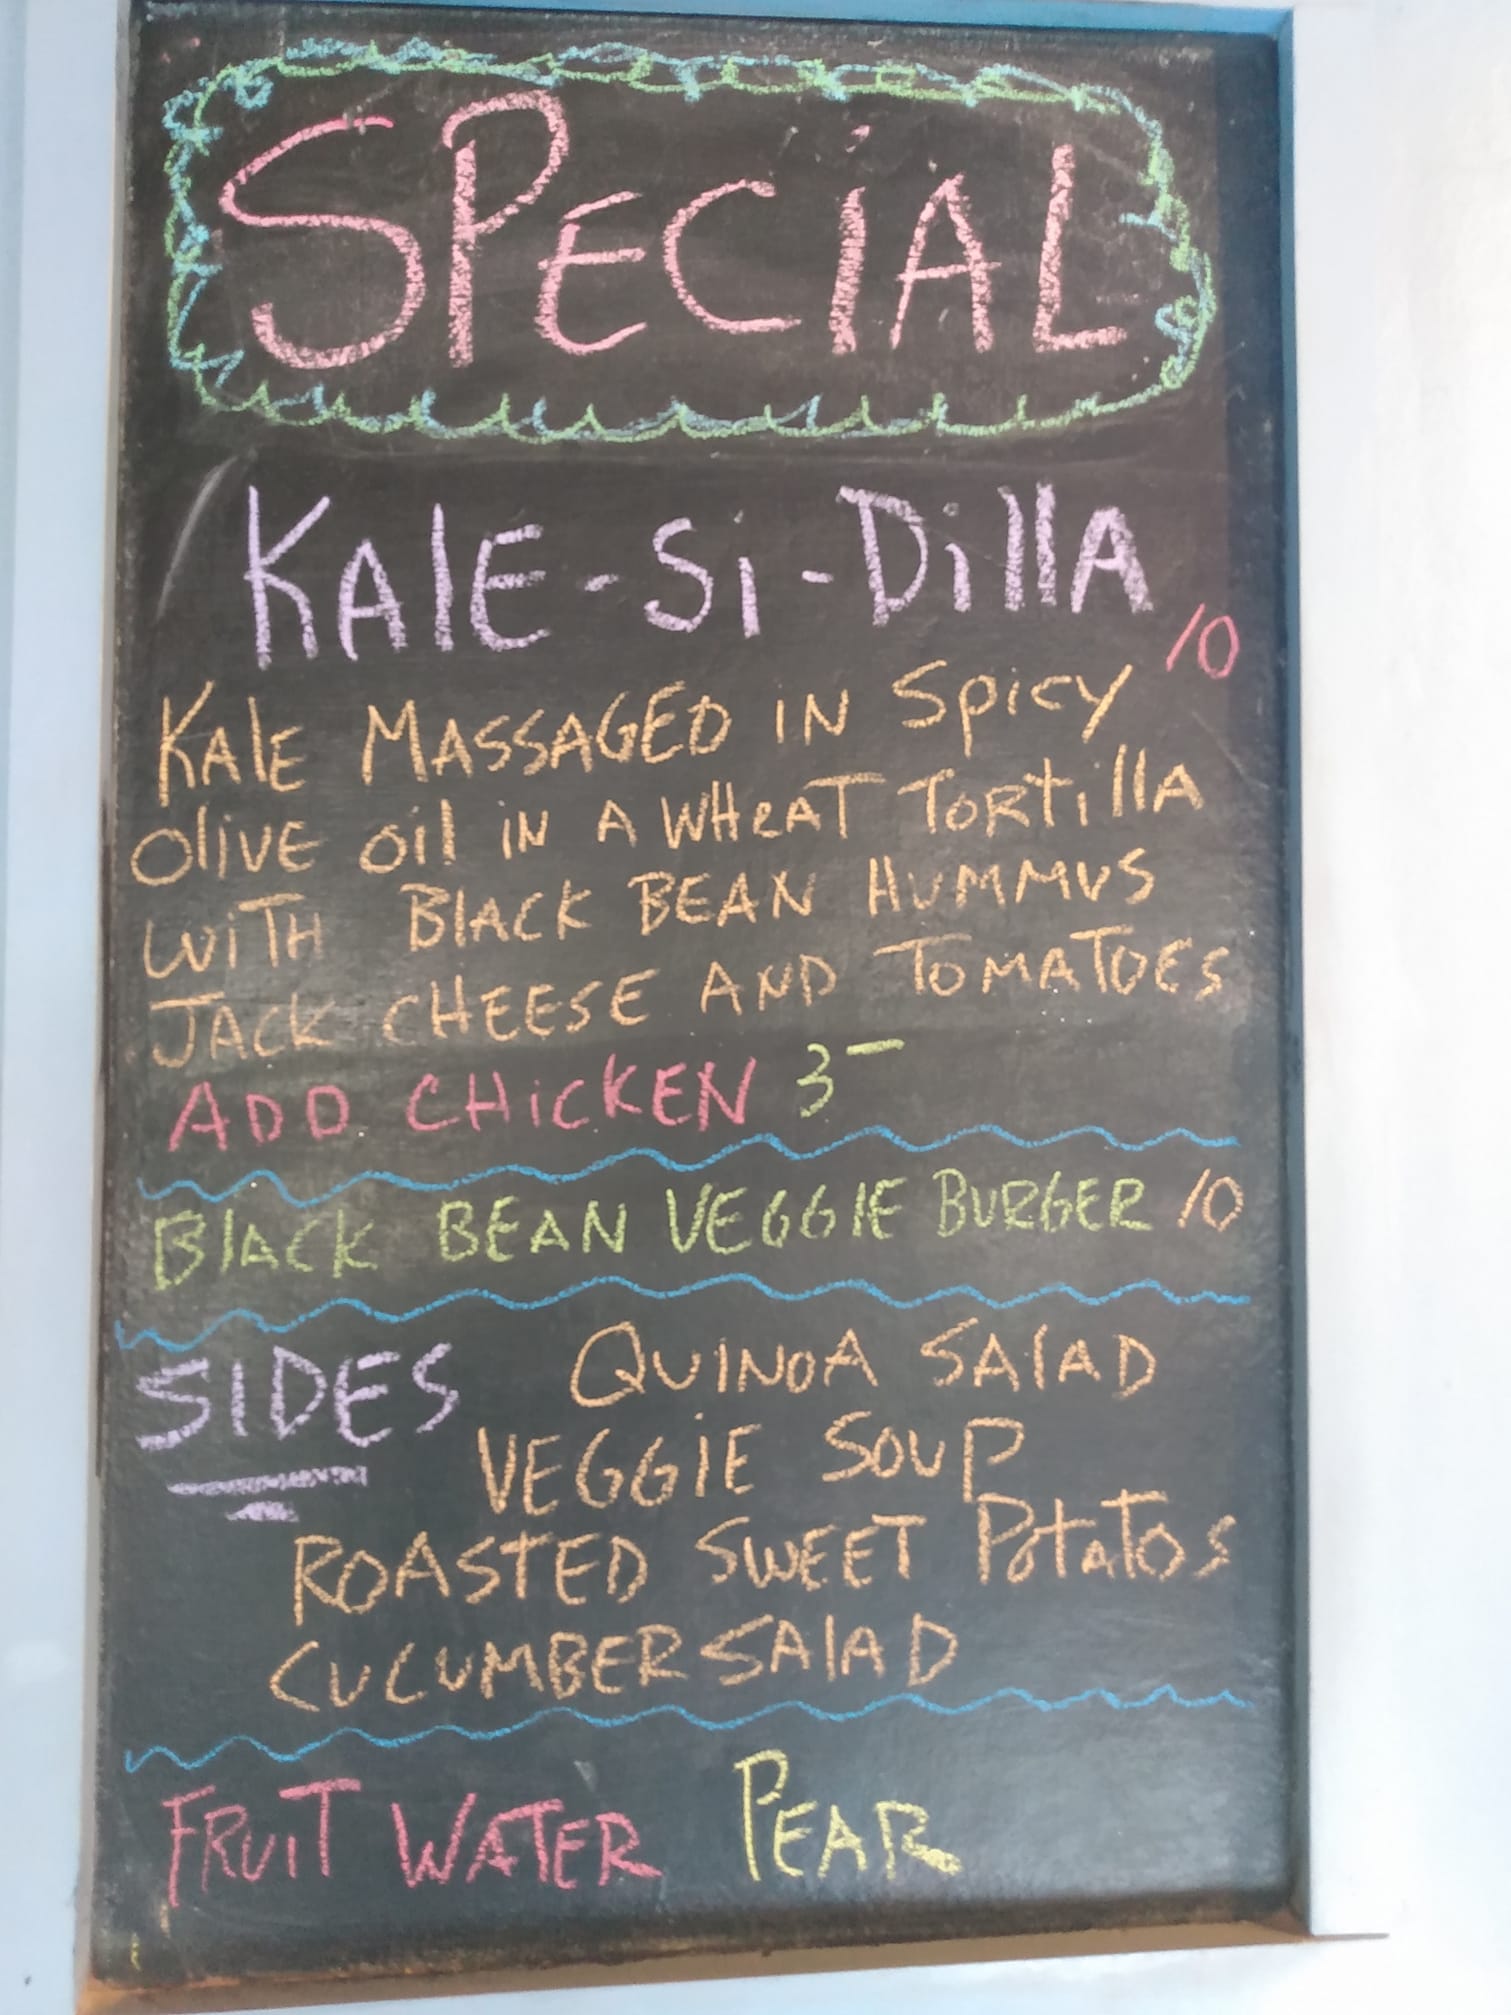 SPECiAL
KAlE-Si-DillA
10
KAlE MASSAGED IN SPicY
Olive oil IN A WHeAT TORtillA
WiTH BlACK BEAN HUMMUS
JACK CHEESE AND TOMATOES
ADD CHiCKEN 3-
BlACK BEAN VEGGIE BURGER 10
SIDES QUINOA SAlAD
VEGGiE SOUP
ROASTED SWEET POtATOS
CUCUMBER SAlAD
FRUiT WATER PEAR